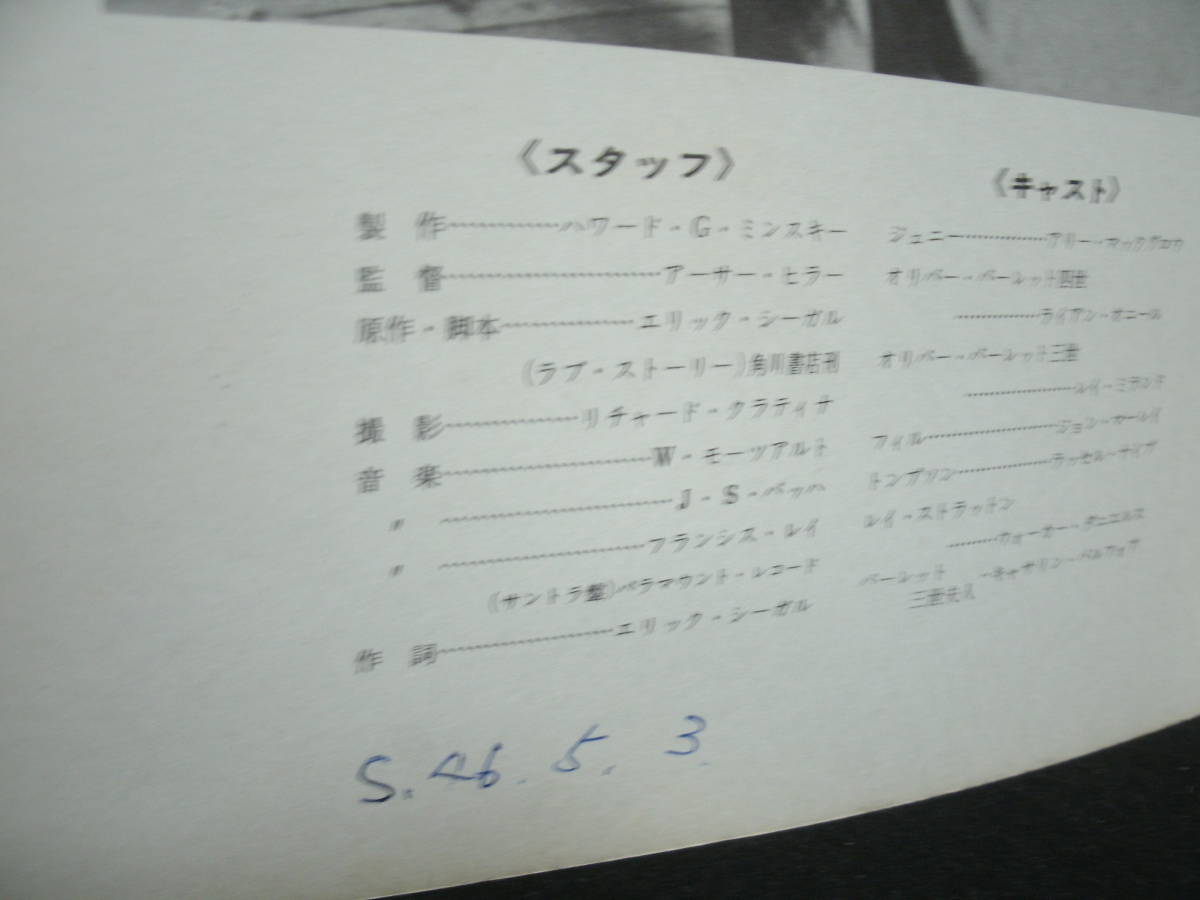 《スタッフ》
製作…………ハワード・G・ミンスキー
監督…………………アーサー・ヒラー
原作・脚本…………エリック・シーガル
(ラブ・ストーリー)角川書店刊
撮影…………リチャード・クラティナ
音楽…………………W・モーツアルト
〃…………………J・S・バッハ
〃…………………フランシス・レイ
(サントラ盤)パラマウント・レコード
作詞…………………エリック・シーガル
《キャスト》
ジェニー…………アリー・マックグロウ
オリバー・バーレット四世
…………ライアン・オニール
オリバー・バーレット三世
…………レイ・ミランド
フィル…………ジョン・マーレイ
トンプソン…………ラッセル・ナイプ
レイ・ストラットン
………ウォーカー・ダニエルズ
バーレット三世夫人…キャサリン・バルフォア
S.46.5.3.